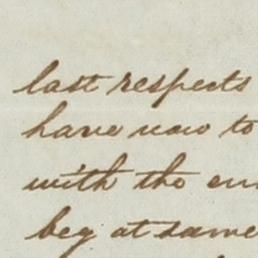 last respects
have now to
with the en
beg at same